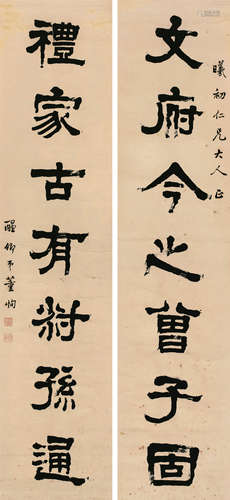 曦初仁兄大人正
文府今之曾子固
禮家古有叔孫通
醖卿弟董恂